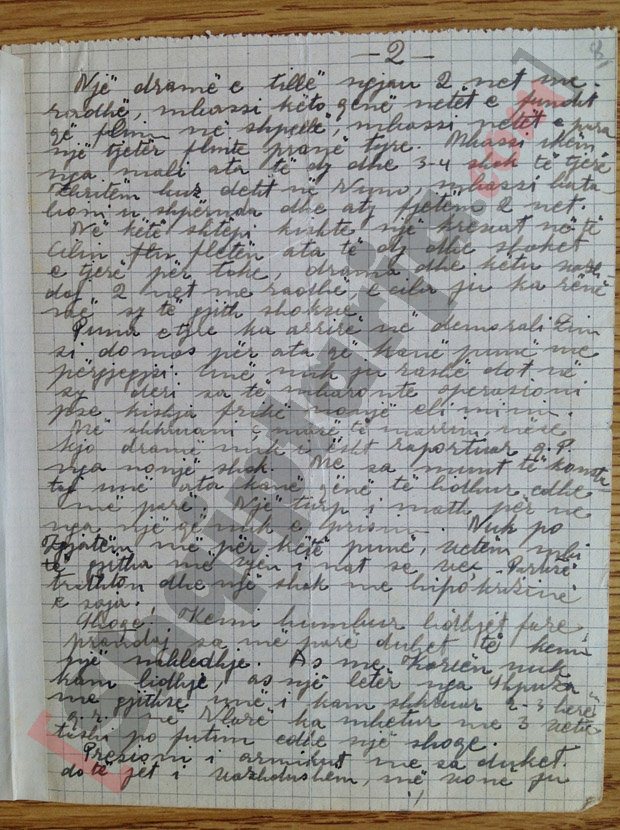 - 2 -
Një dramë e tillë ngjau 2 net me
radhë, mbassi këto qenë netët e fundit
që flinim në shpellë, mbassi netët e para
një tjetër flinte pranë tyre. Mbassi ikëm
nga mali ata të dy dhe 3-4 shok të tjerë
zbritëm buz detit në Vuno, mbassi bata
lioni u shpërnda dhe aty fjetëm 2 net.
Në këtë shtëpi kishte një krevat në të
cilin flin fletën ata të dy dhe shoket
e tjerë për toke, drama dhe këtu vazh
doj 2 net me radhë e cila ju ka rënë
në sy të gjith shokve.
Puna e tyre ka arrirë në demoralizim
si domos për ata që kanë punë me
përgjegjsi unë nuk ju rashë dot në
sy deri sa të mbaronte operasioni
pse kishja frikë nonjë eliminim.
Më shkruani e marë të marrim nëse
kjo dramë nuk është raportuar q. P.
nga nonjë shok. Me sa munt të konsta
toj unë ata kanë qënë të lidhur edhe
më parë. Një turp i math për ne
nga një që nuk e prisnim. Nuk po
zgjatëm më për këtë punë, vetëm mbi
të gjitha me vjen i nat se veç Partisë
trathton dhe një shok me hipokrizinë
e saja.
Shoqe! Kemi humbur lidhjet fare,
prandaj sa më parë duhet të kemi
një mbledhje. As me Korçën nuk
kam lidhje, as një letër nga Shpuza
me gjithse unë i kam shkruar 2-3 herë
q.r. në Vlorë ka mbetur me 3 veta
tashi po futim edhe një shoqe.
Presioni i armikut me sa duket
do të jet i vazhdushëm, më vonë ju
[Shqiptarja.com]